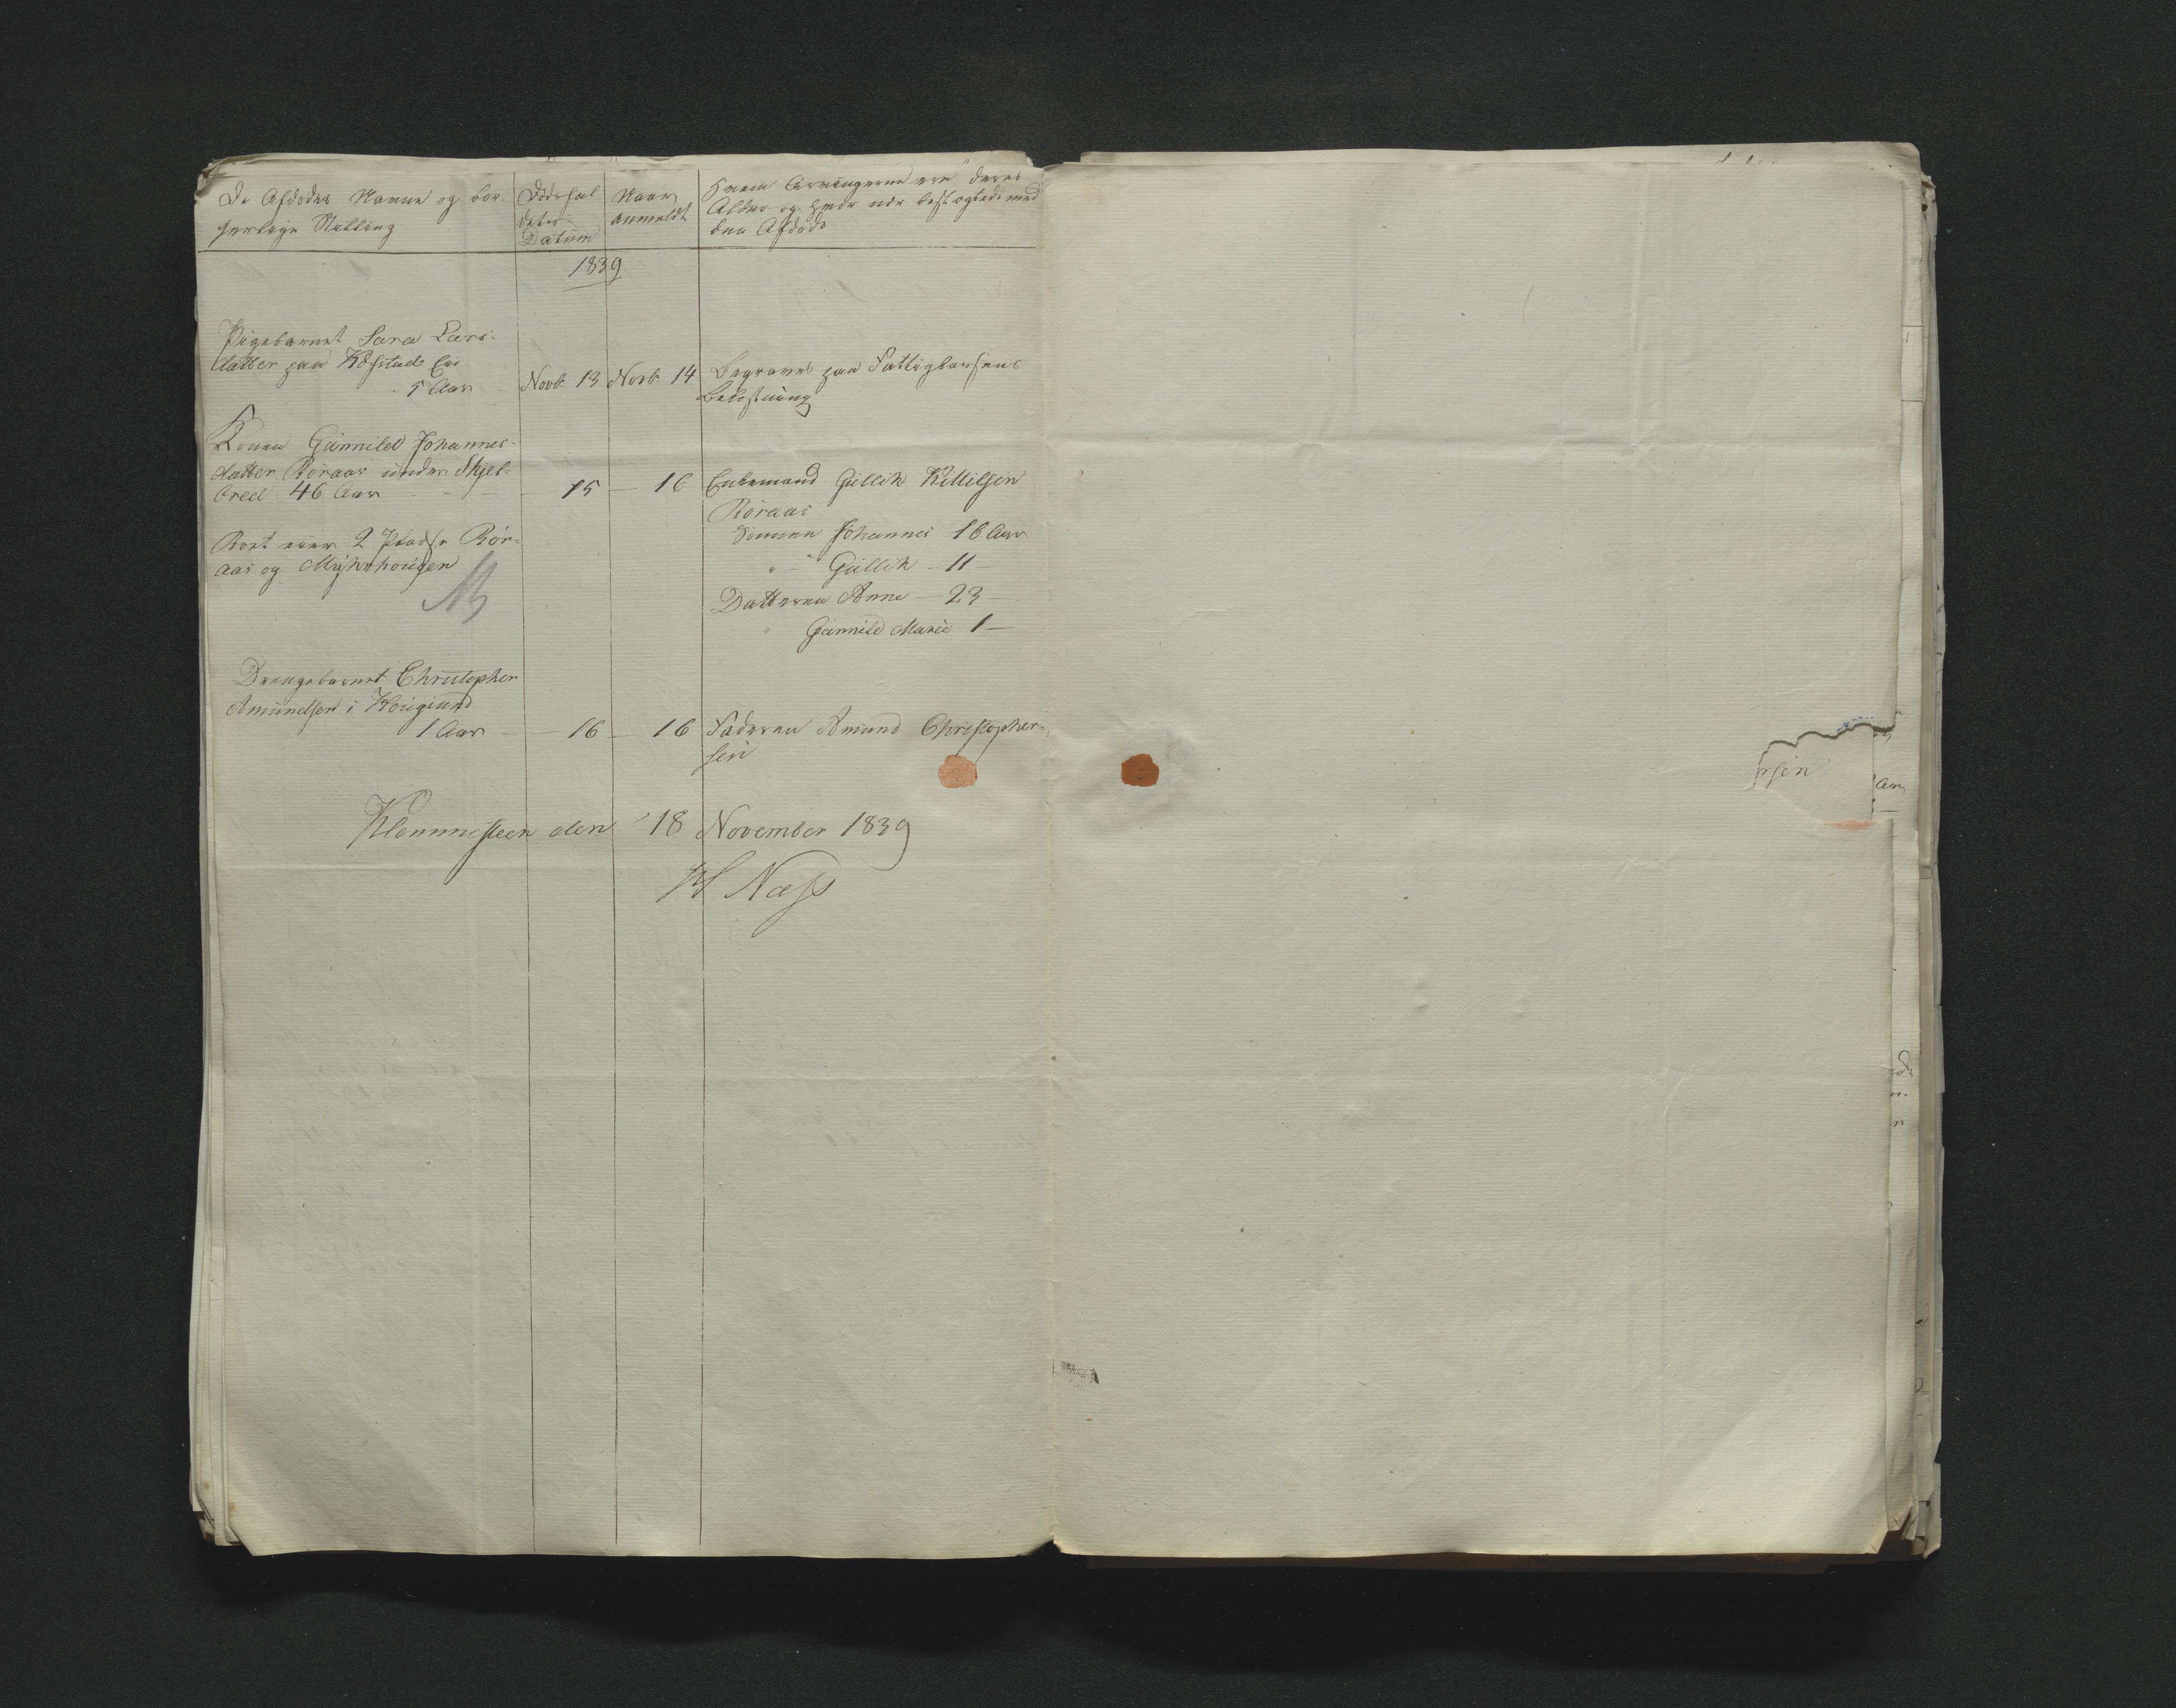 De Afdødes Navne og bor-
gerlige Stilling
Dødsfal
dets
Datum
Naar
anmeldt
Hvem Arvingerne ere deres
Alder og hvor nær beslægtede med
den Afdøde
1839
Pigebarnet Sara Lars-
datter paa Eie
5 Aar
Novb. 13
Novb. 14
Begraves paa Fattigkassens
bekostning
Konen Gunnild Johannes-
datter Røraas under Skjel-
bred 46 Aar - - -
15 -
16
Enkemand Gullik Kittilsen
Røraas
Sønnen Johannes 16 Aar
" - Gullik - 11 -
Datteren Anne - 23 -
" Gunnild Marie 1 -
2 Pladse Rør-
aas og Myhrhougen
Drengebarnet Christopher
Amundsen i Hougsund
1 Aar -
- 16 -
16
Faderen Amund Christopher-
sen
den 18 November 1839
Næss
rsen
Aar